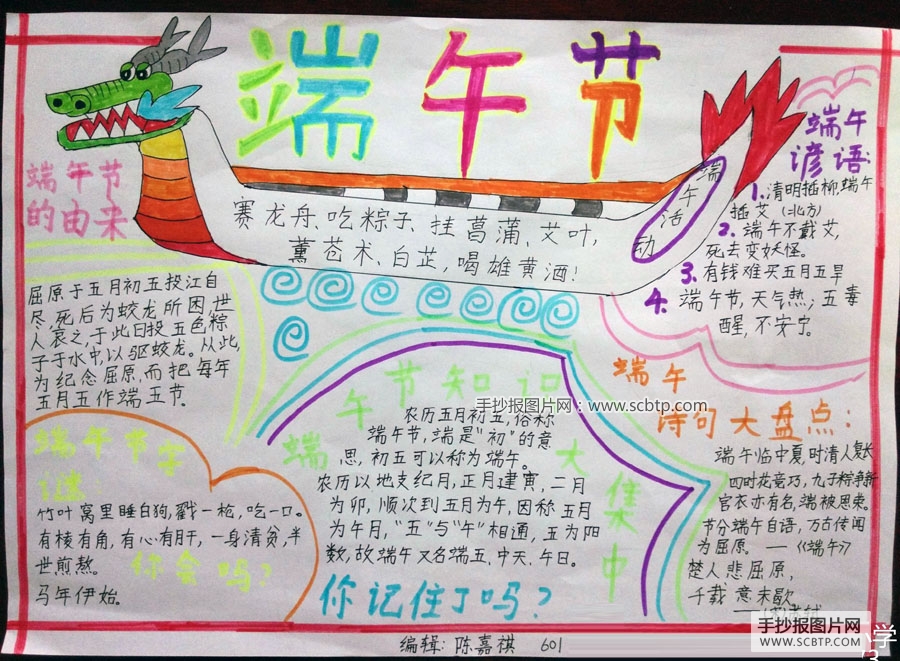 端午节
端午节
的由来
屈原于五月初五投江自
尽,死后为蛟龙所困,世
人哀之,于此日投五色粽
子于水中,以驱蛟龙。从此,
为纪念屈原,而把每年
五月五作端五节.
赛龙舟、吃粽子、挂菖蒲、艾叶,
薰苍术、白芷,喝雄黄酒!
端午活动
端午
谚语:
1.清明插柳,端午
插艾(北方)
2.端午不戴艾,
死去变妖怪。
3.有钱难买五月五旱
4.端午节,天气热;五毒
醒,不安宁。
端午节字
谜:
竹叶窝里睡白狗,戳一枪,吃一口。
有棱有角,有心有肝,一身清贫,半
世煎熬。
马年伊始。
你会吗?
端午节知识大集中
农历五月初五,俗称
端午节,端是“初”的意
思,初五可以称为端午。
农历以地支纪月,正月建寅,二月
为卯,顺次到五月为午,因称五月
为午月,“五”与“午”相通,五为阳
数,故端午又名端五、中天、午日。
你记住了吗?
手抄报图片网:www.scbtp.com
端午
诗句大盘点:
端午临中夏,时清人复长
四时花竞巧,九子粽争新
官衣亦有名,端被思束。
节分端午自语,万古传闻
为屈原。——《端午》
楚人悲屈原,
千载意未歇
编辑:陈嘉祺 601
手抄报图片网
WWW.SCBTP.COM